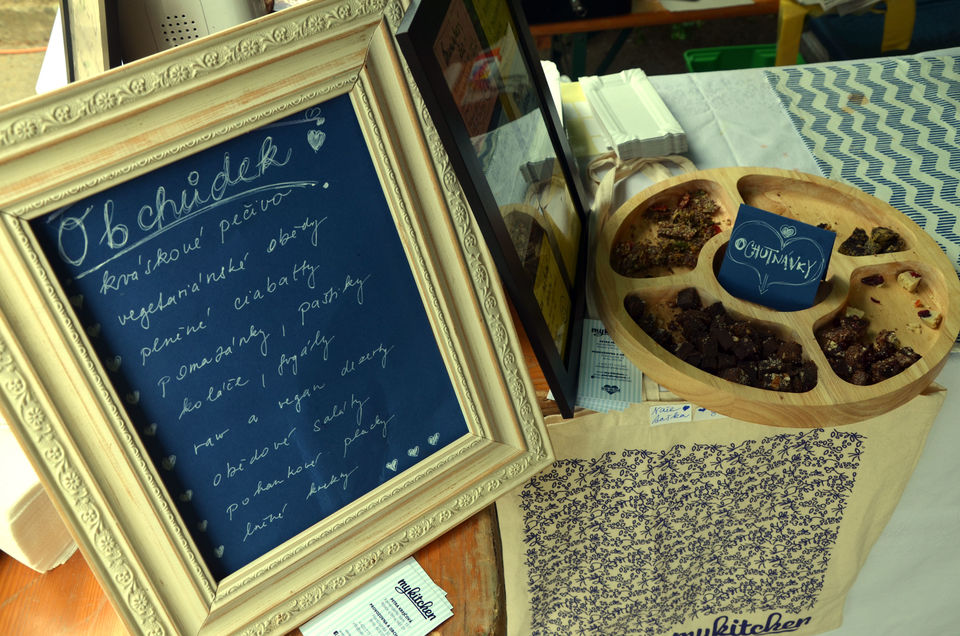 Obchůdek
kváskové pečivo
vegetariánské obědy
plněné ciabatty
pomazánky i paštiky
koláče i frgály
raw a vegan dezerty
obědové saláty
pohankové placky
lněné krekry
OCHUTNÁVKY
Naše
taška
mykitchen
mykitchen
mykitchen